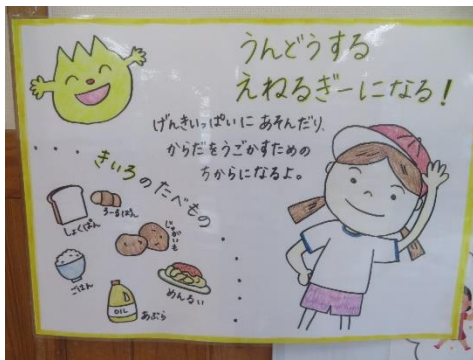 うんどうする
えねるぎーになる!
げんきいっぱいに あそんだり、
からだをうごかすための
ちからになるよ。
きいろのたべもの
しょくぱん
ろーるぱん
じゃがいも
ごはん
OIL
あぶら
めんるい